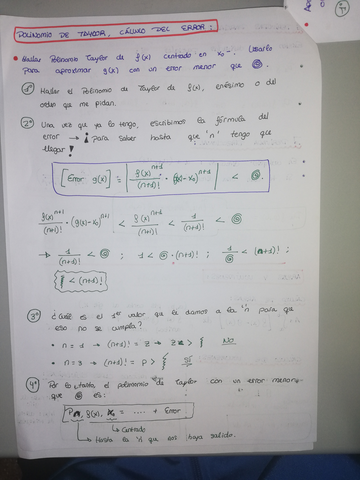 POLINOMIO DE TAYLOR, CÁLCULO DEL ERROR:
• Hallar Polinomio Taylor de f(x) centrado en x₀. Usarlo
para aproximar g(x) con un error menor que @.
1º Hallar el Polinomio de Taylor de f(x), enésimo o del
orden que me pidan.
2º Una vez que ya lo tengo, escribimos la fórmula del
error → ¡ para saber hasta que 'n' tengo que
llegar !
[Error g(x)] = | f(x)ⁿ⁺¹ / (n+1)! · (g(x)-x₀)ⁿ⁺¹ | < @
f(x)ⁿ⁺¹ / (n+1)! · (g(x)-x₀)ⁿ⁺¹ < f(x)ⁿ⁺¹ / (n+1)! < 1 / (n+1)! < @
→ 1 / (n+1)! < @ ; 1 < @ · (n+1)! ; 1 / @ < (n+1)! ;
< (n+1)!
3º ¿Cuál es el 1er valor que le damos a la 'n' para que
eso no se cumpla?
• n = 1 → (n+1)! = z → z > NO
• n = 3 → (n+1)! = p > Sí
4º Por lo tanto, el polinomio de Taylor con un error menor
que @ es:
Pn, f(x), x₀ = ..... + Error
↳ Centrado
↳ Hasta la 'n' que nos haya salido.